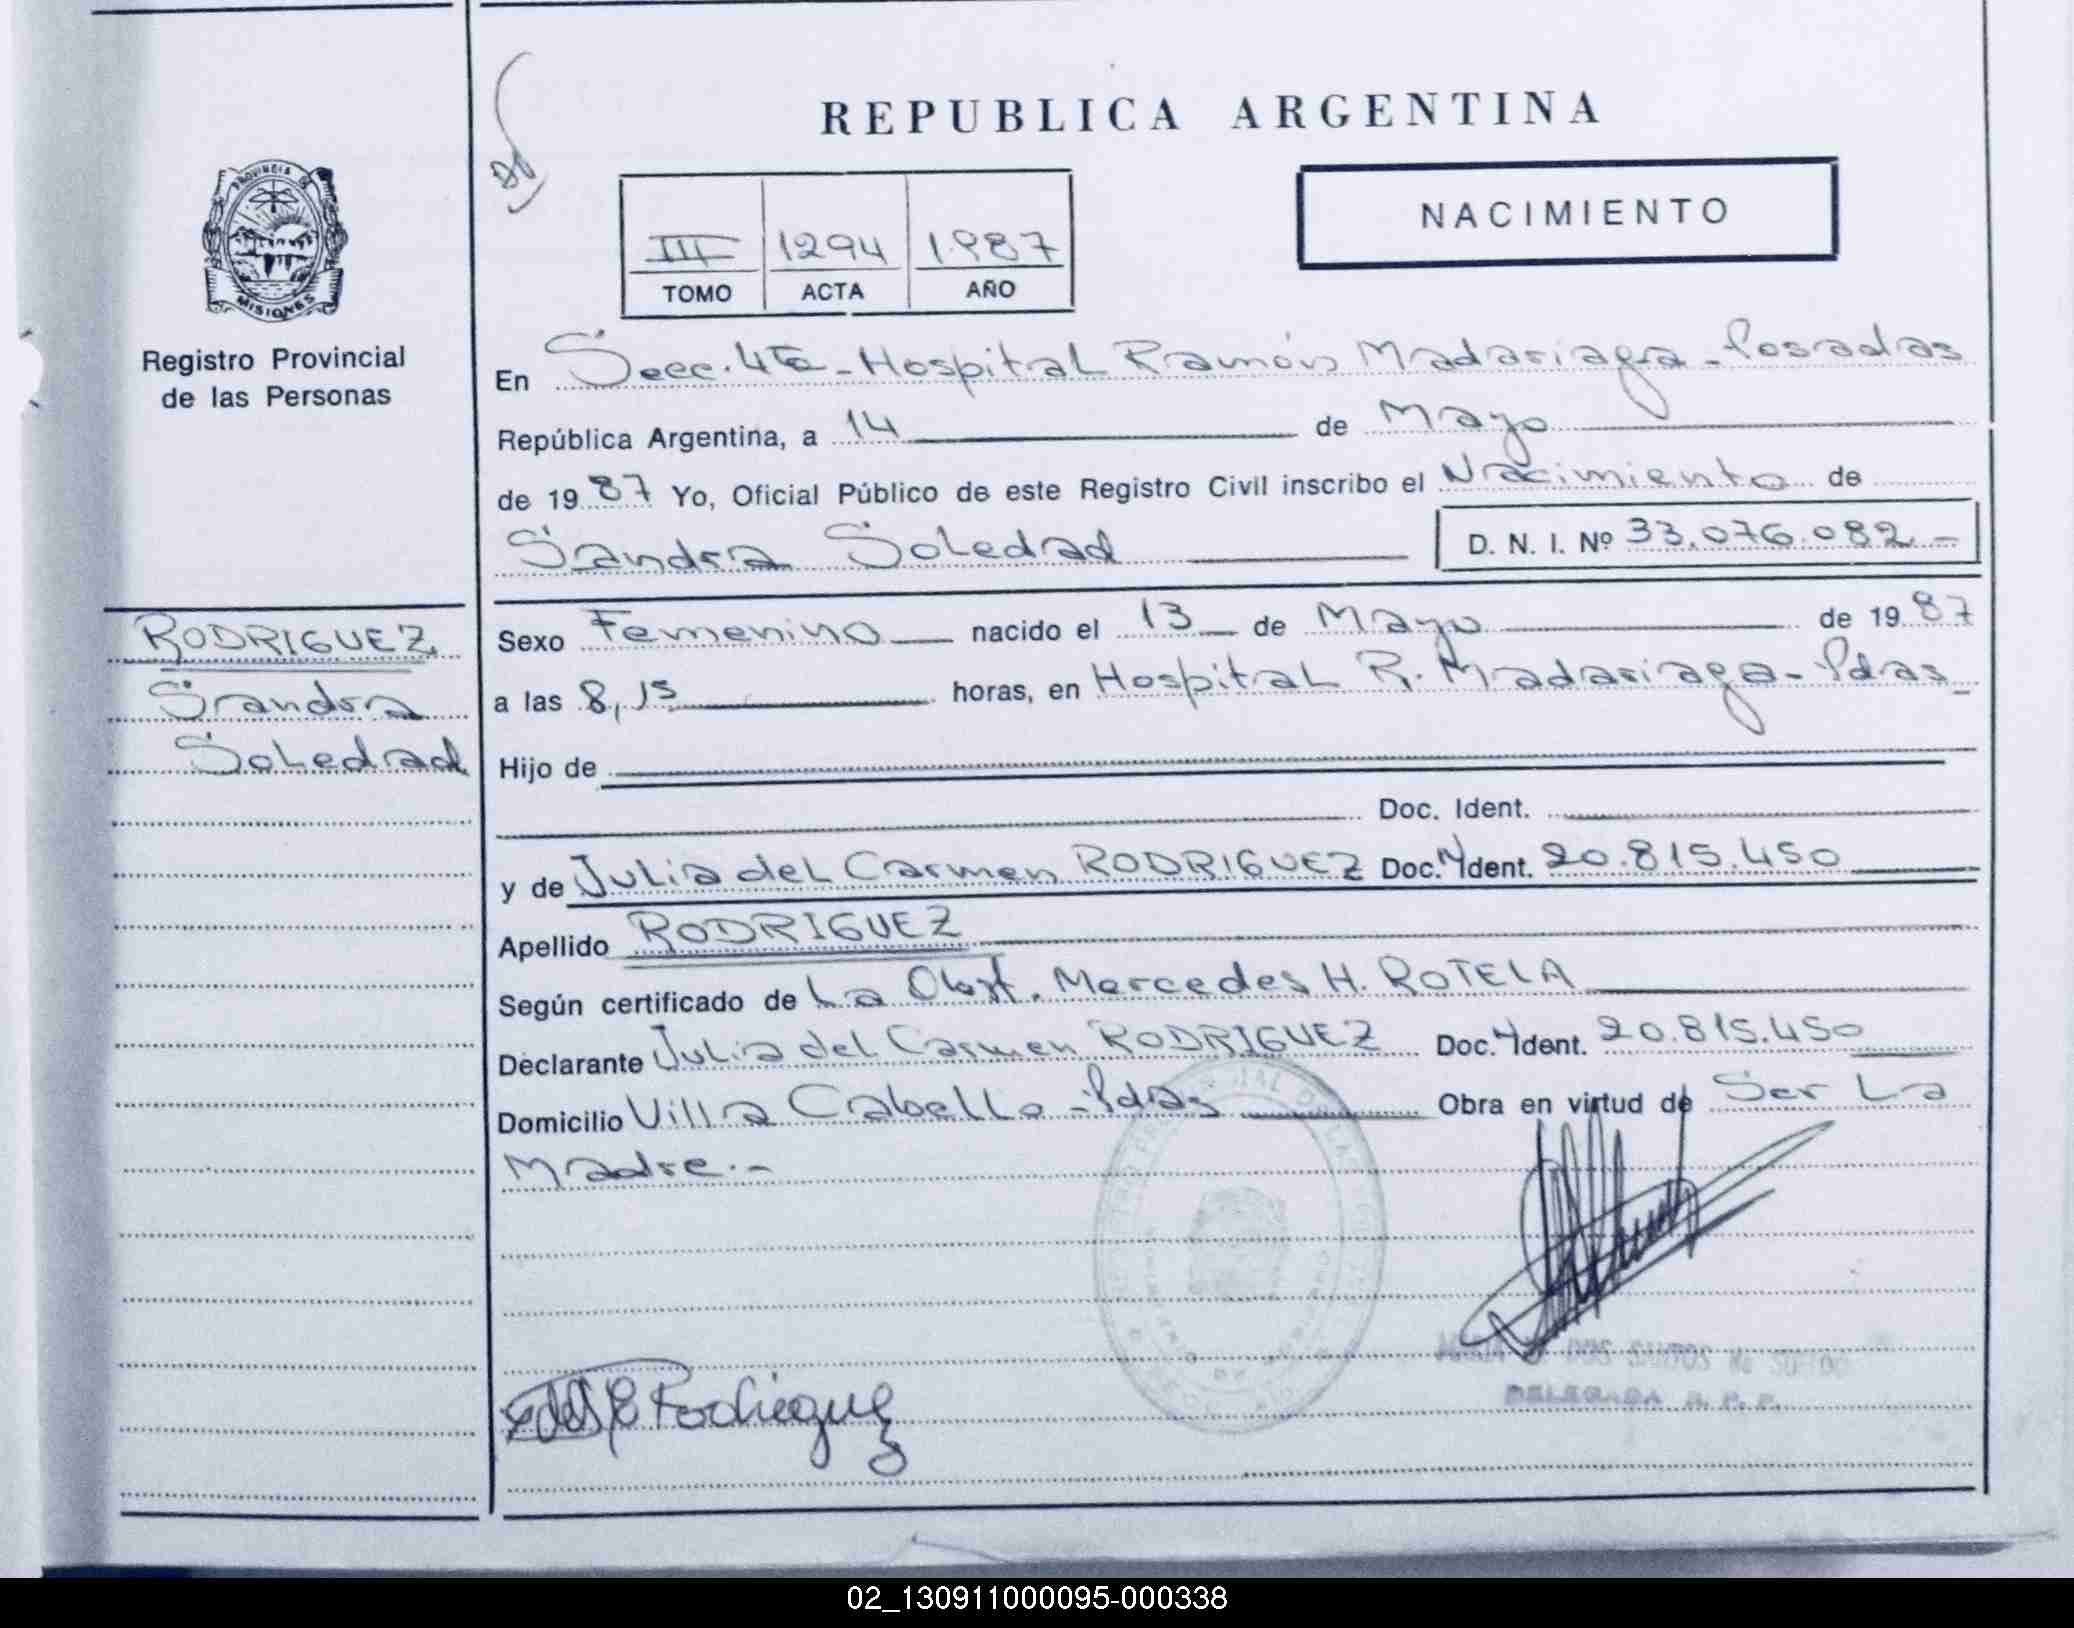 REPUBLICA ARGENTINA
NACIMIENTO
III 1294 1987
TOMO ACTA AÑO
PROVINCIA DE
MISIONES
Registro Provincial
de las Personas
En Secc. 4ta - Hospital Ramón Madariaga - Posadas
República Argentina, a 14 de Mayo
de 1987 Yo, Oficial Público de este Registro Civil inscribo el Nacimiento de
Sandra Soledad D. N. I. Nº 33.076.082.-
RODRIGUEZ
Sandra
Soledad
Sexo Femenino nacido el 13 de Mayo de 1987
a las 8,15 horas, en Hospital R. Madariaga - Pdas
Hijo de
Doc. Ident.
y de Julia del Carmen RODRIGUEZ Doc. N Ident. 20.815.450
Apellido RODRIGUEZ
Según certificado de La Obst. Mercedes H. ROTELA
Declarante Julia del Carmen RODRIGUEZ Doc. Ident. 20.815.450
Domicilio Villa Cabello - Pdas Obra en virtud de Ser La
Madre.-
DOS SANTOS de
DELEGADA R. P. P.
Rodriguez
02_130911000095-000338